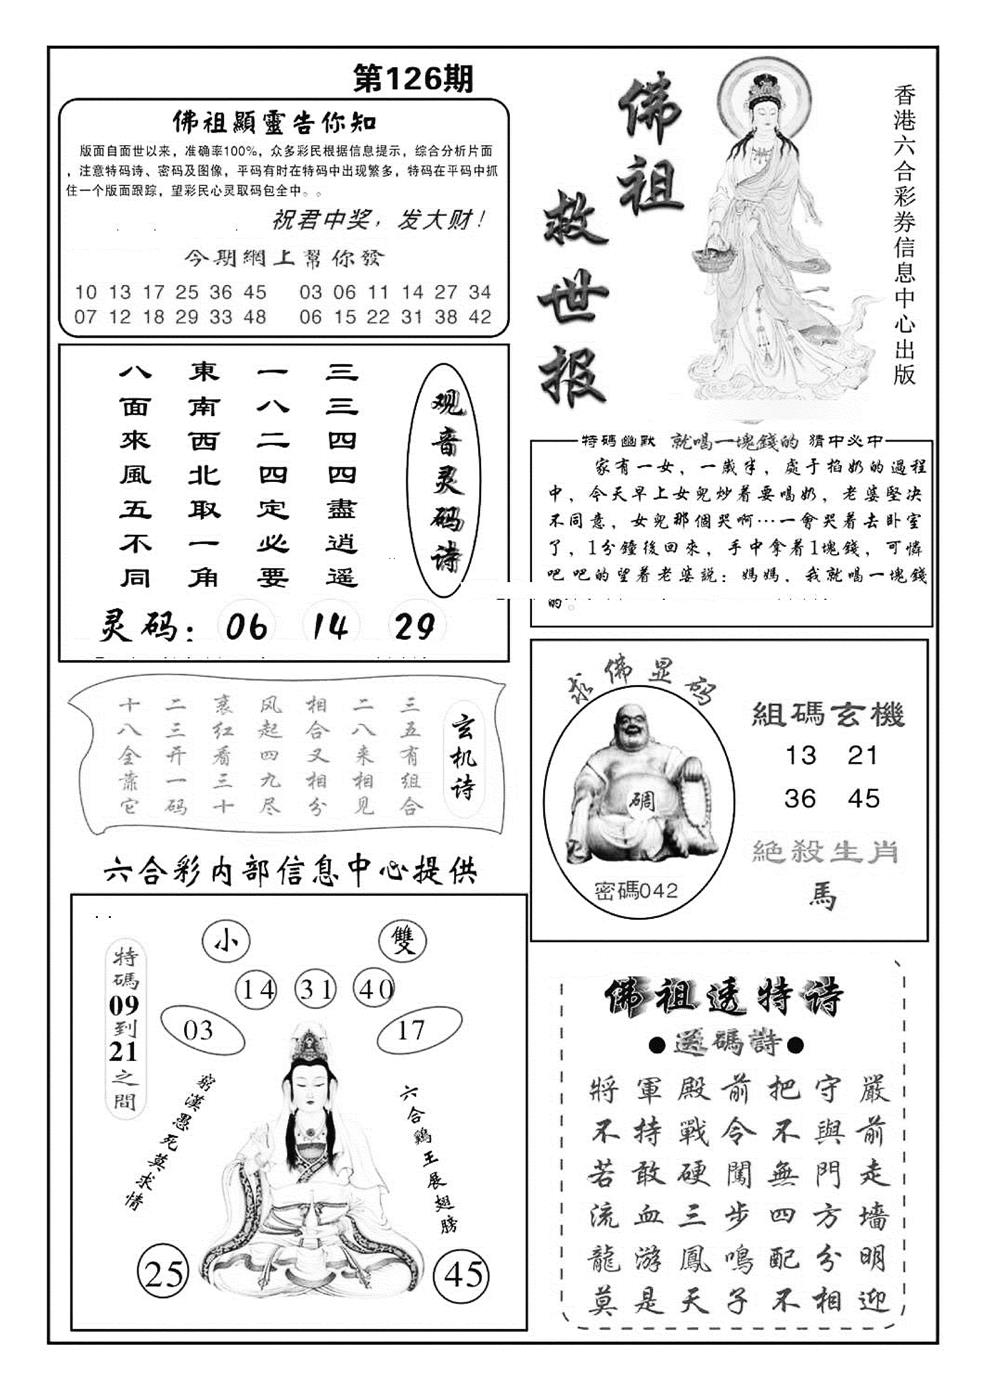 第126期
佛祖顯靈告你知
版面自面世以来，准确率100%，众多彩民根据信息提示，综合分析片面
，注意特码诗、密码及图像，平码有时在特码中出现繁多，特码在平码中抓
住一个版面跟踪，望彩民心灵取码包全中。。
祝君中奖，发大财！
今期網上幫你發
10 13 17 25 36 45 03 06 11 14 27 34
07 12 18 29 33 48 06 15 22 31 38 42
佛祖
救世报
香港六合彩券信息中心出版
观音灵码诗
三三四四盡逍遥
一八二四定必要
東南西北取一角
八面來風五不同
灵码：06 14 29
特碼幽默 就喝一塊錢的 猜中必中
家有一女，一歲半，處于掐奶的過程
中，今天早上女兒炒着要喝奶，老婆堅决
不同意，女兒那個哭啊…一會哭着去卧室
了，1分鐘後回來，手中拿着1塊錢，可憐
吧吧的望着老婆説：媽媽，我就喝一塊錢
的。
玄机诗
三五有组合
二八来相见
相合又相分
风起四九尽
裹红看三十
二三开一码
十八全靠它
求佛显码
碉
密碼042
組碼玄機
13 21
36 45
絕殺生肖
馬
六合彩内部信息中心提供
小
雙
14 31 40
03
17
特碼09到21之間
窮漢愚死莫求情
六合鷄王展翅膀
25
45
佛祖透特诗
●送碼詩●
將軍殿前把守嚴
不持戰令不與前
若敢硬闖無門走
流血三步四方墻
龍游鳳鳴配分明
莫是天子不相迎